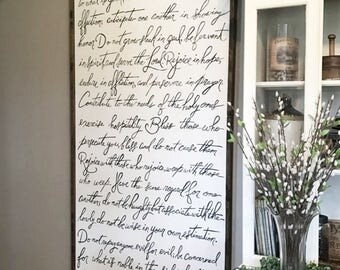 affection, anticipate one another in showing
honor. Do not grow slack in zeal, be fervent
in spirit and serve the Lord. Rejoice in hope,
endure in affliction, and persevere in prayer.
Contribute to the needs of the holy ones
exercise hospitality. Bless those who
persecute you, bless and do not curse them.
Rejoice with those who rejoice weep with those
who weep. Have the same regard for one
another, do not be haughty but associate with the
lowly, do not be wise in your own estimation.
Do not repay anyone evil for evil, be concerned
for what is noble in the sight